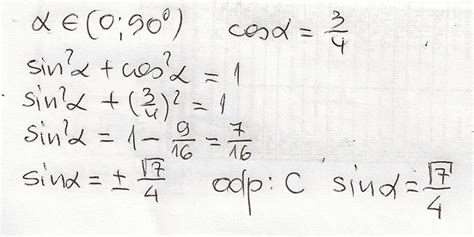 α ∈ (0; 90°) cosα = 3/4
sin²α + cos²α = 1
sin²α + (3/4)² = 1
sin²α = 1 - 9/16 = 7/16
sinα = ± √7/4 odp: C sinα = √7/4